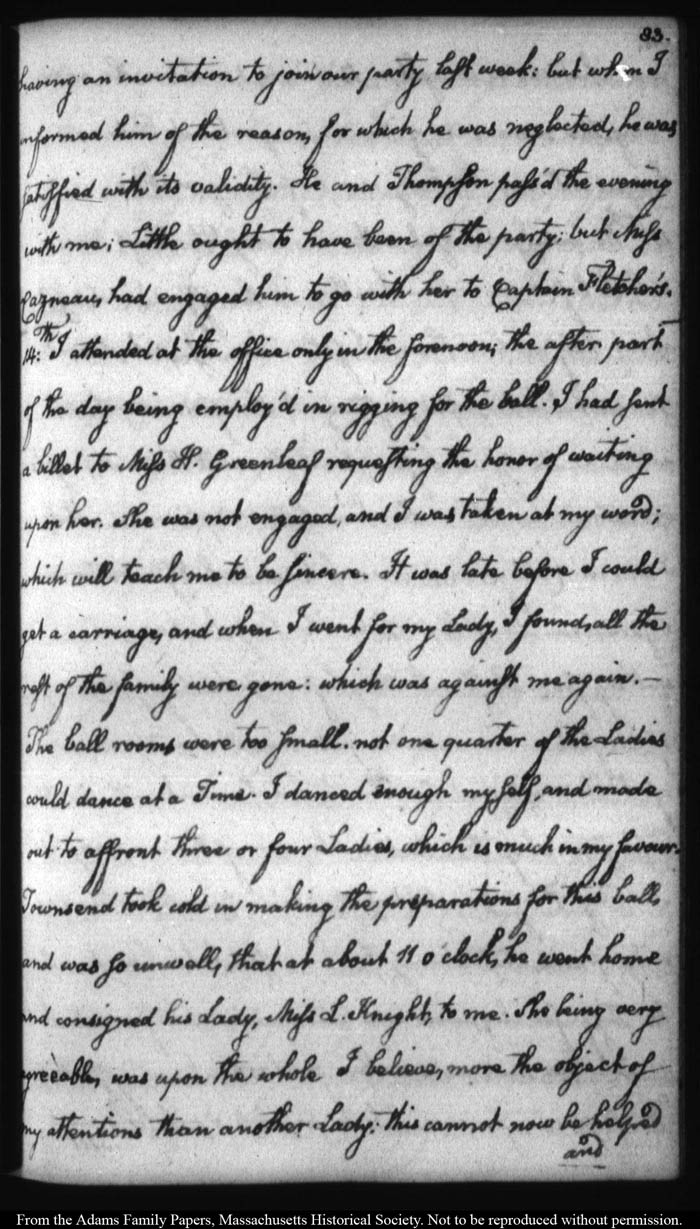 83.
having an invitation to join our party last week: but when I
informed him of the reason, for which he was neglected, he was
satisfied with its validity. He and Thompson pass'd the evening
with me; Little ought to have been of the party: but Miss
Cazneau, had engaged him to go with her to Captain Fletcher's.
14:th I attended at the office only in the forenoon; the after part
of the day being employ'd in rigging for the ball. I had sent
a billet to Miss H. Greenleaf requesting the honor of waiting
upon her. She was not engaged, and I was taken at my word;
which will teach me to be sincere. It was late before I could
get a carriage, and when I went for my Lady, I found, all the
rest of the family were gone: which was against me again.—
The ball rooms were too small. not one quarter of the Ladies
could dance at a Time. I danced enough myself, and made
out to affront three or four Ladies, which is much in my favour.
Townsend took cold in making the preparations for this ball,
and was so unwell, that at about 11 o'clock, he went home
and consigned his Lady, Miss L. Knight, to me. She being very
agreeable, was upon the whole I believe, more the object of
my attentions than another Lady; this cannot now be helped
and
From the Adams Family Papers, Massachusetts Historical Society. Not to be reproduced without permission